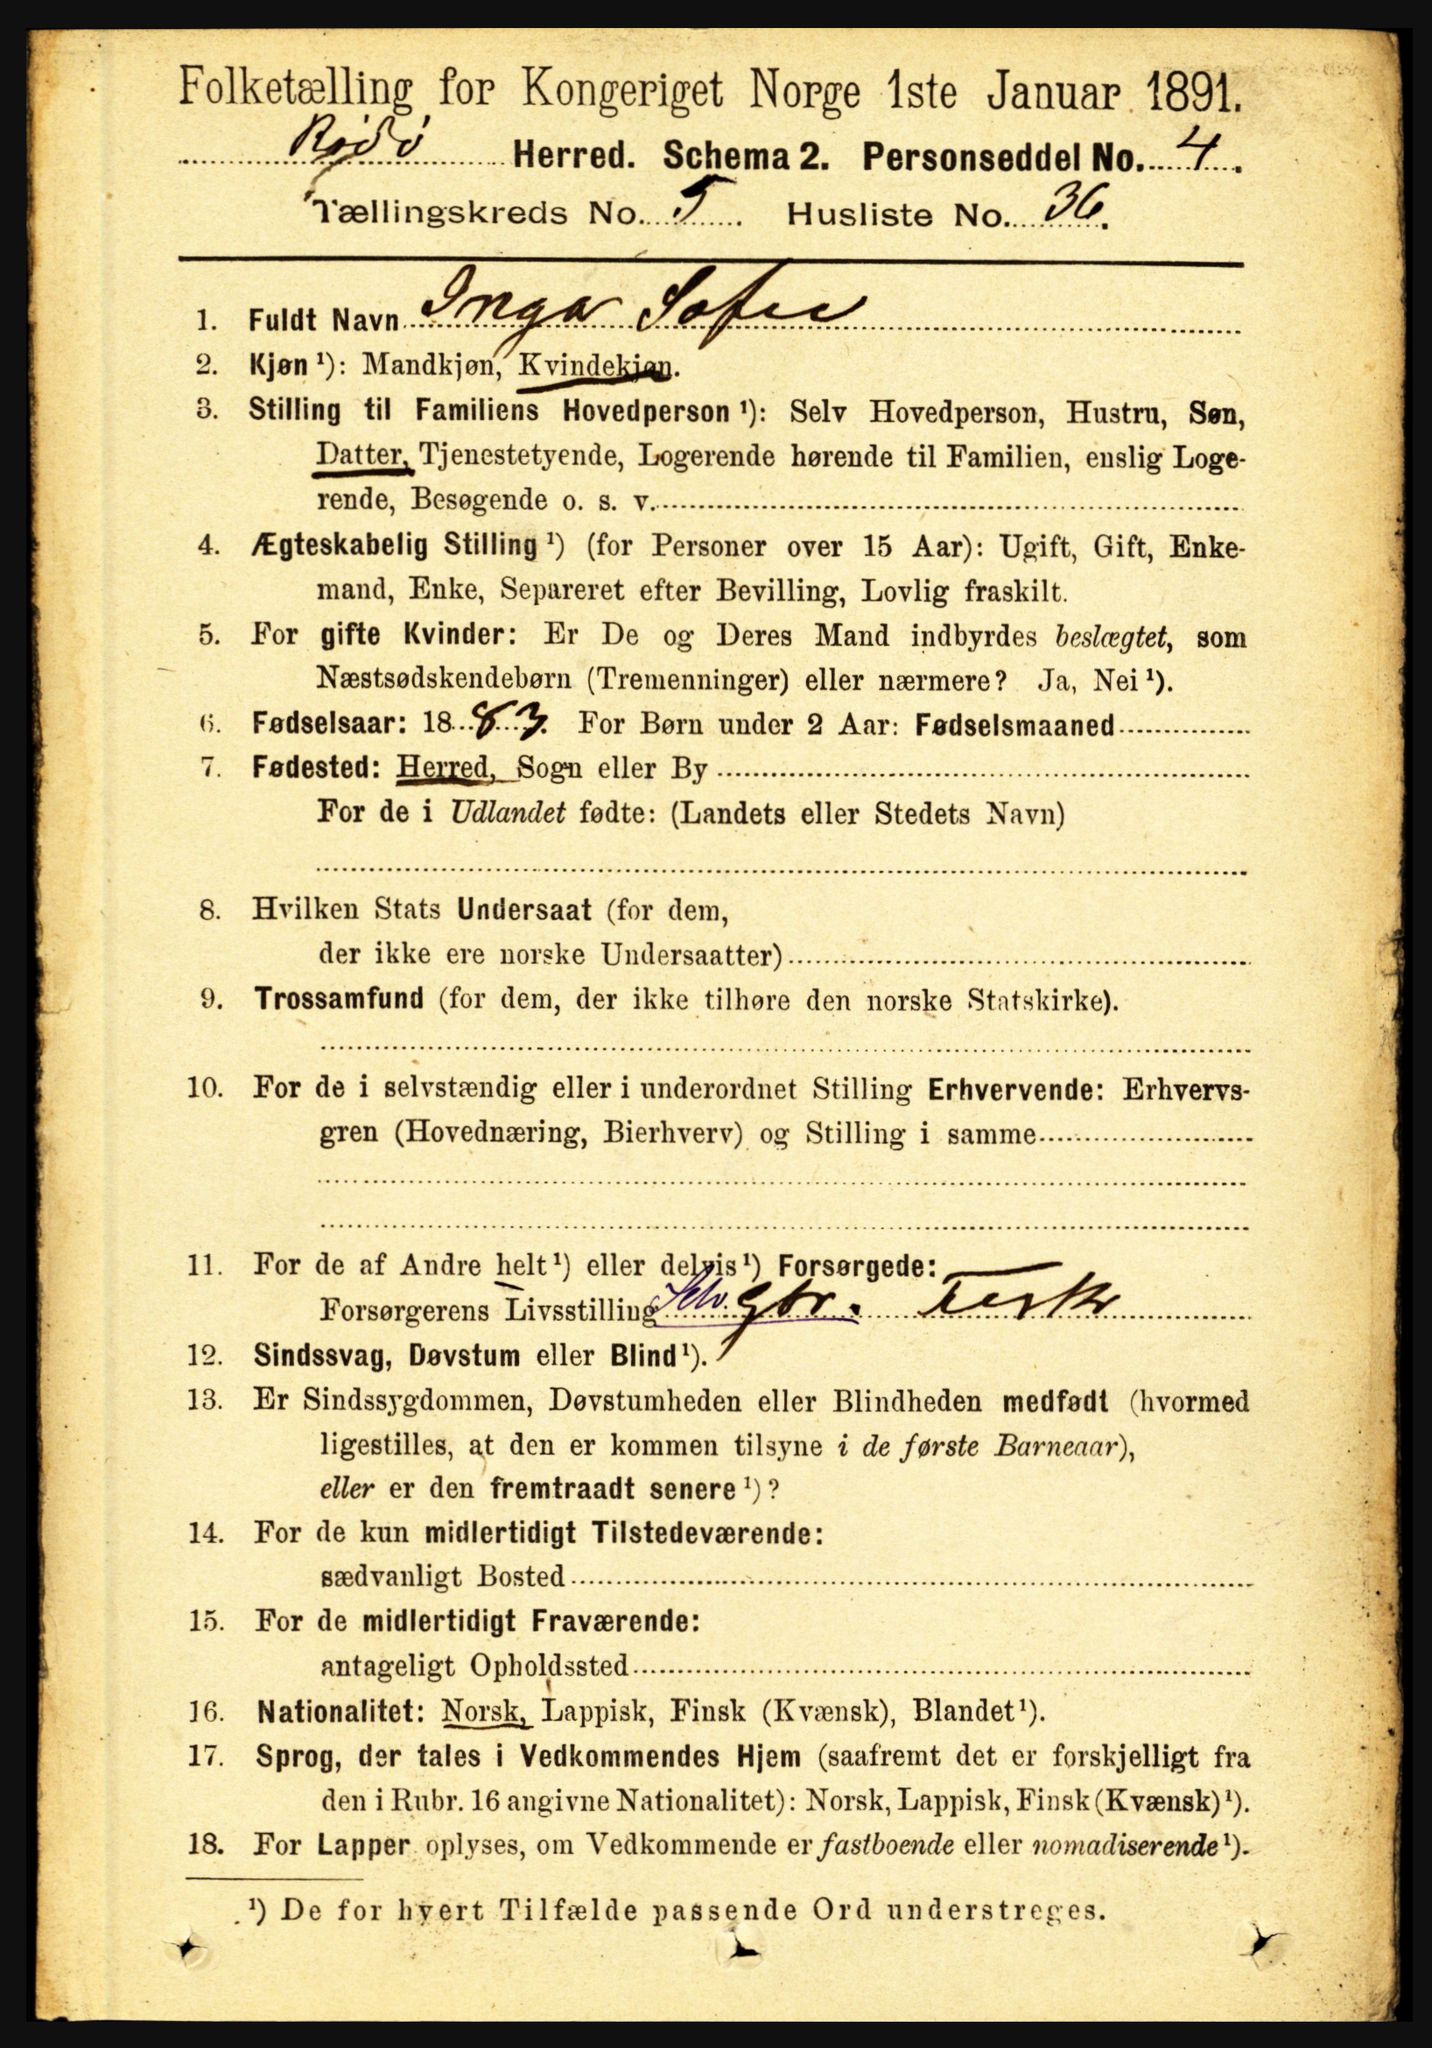 Folketælling for Kongeriget Norge 1ste Januar 1891.
Rødø Herred. Schema 2. Personseddel No. 4.
Tællingskreds No. 5. Husliste No. 36.
1. Fuldt Navn Inga Sofie
2. Kjøn¹): Mandkjøn, Kvindekjøn.
3. Stilling til Familiens Hovedperson¹): Selv Hovedperson, Hustru, Søn,
Datter, Tjenestetyende, Logerende hørende til Familien, enslig Loge-
rende, Besøgende o. s. v.
4. Ægteskabelig Stilling¹) (for Personer over 15 Aar): Ugift, Gift, Enke-
mand, Enke, Separeret efter Bevilling, Lovlig fraskilt.
5. For gifte Kvinder: Er De og Deres Mand indbyrdes beslægtet, som
Næstsødskendebørn (Tremenninger) eller nærmere? Ja, Nei¹).
6. Fødselsaar: 1883. For Børn under 2 Aar: Fødselsmaaned
7. Fødested: Herred, Sogn eller By
For de i Udlandet fødte: (Landets eller Stedets Navn)
8. Hvilken Stats Undersaat (for dem,
der ikke ere norske Undersaatter)
9. Trossamfund (for dem, der ikke tilhøre den norske Statskirke).
10. For de i selvstændig eller i underordnet Stilling Erhvervende: Erhvervs-
gren (Hovednæring, Bierhverv) og Stilling i samme
11. For de af Andre helt¹) eller delvis¹) Forsørgede:
Forsørgerens Livsstilling Selv. Gbr.
12. Sindssvag, Døvstum eller Blind¹).
13. Er Sindssygdommen, Døvstumheden eller Blindheden medfødt (hvormed
ligestilles, at den er kommen tilsyne i de første Barneaar),
eller er den fremtraadt senere¹)?
14. For de kun midlertidigt Tilstedeværende:
sædvanligt Bosted
15. For de midlertidigt Fraværende:
antageligt Opholdssted
16. Nationalitet: Norsk, Lappisk, Finsk (Kvænsk), Blandet¹).
17. Sprog, der tales i Vedkommendes Hjem (saafremt det er forskjelligt fra
den i Rubr. 16 angivne Nationalitet): Norsk, Lappisk, Finsk (Kvænsk)¹).
18. For Lapper oplyses, om Vedkommende er fastboende eller nomadiserende¹).
¹) De for hvert Tilfælde passende Ord understreges.